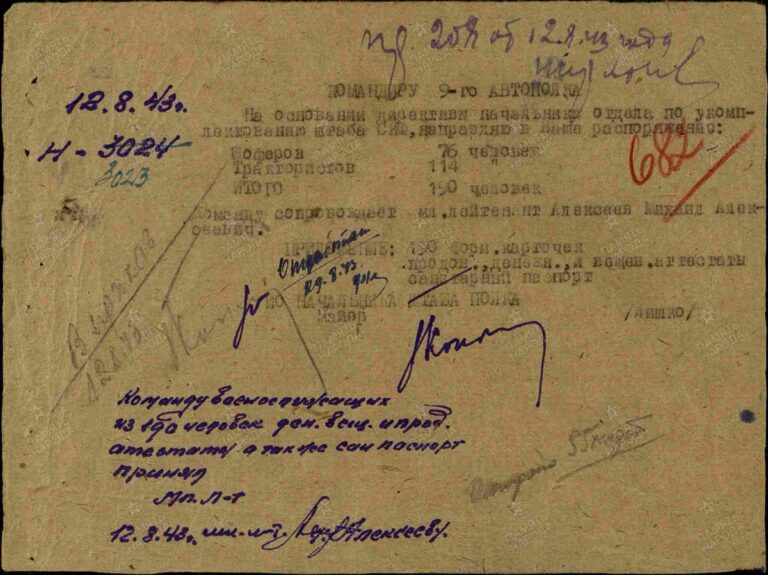 12.8.43г.
Н-3024
3023
682
КОМАНДИРУ 9-го АВТОПОЛКА
На основании директивы начальника отдела по укомп-
лектованию штаба направляю в ваше распоряжение:
Шоферов 76 человек
Трактористов 114 "
ИТОГО 190 человек
Команду сопровождает мл.лейтенант Алексеев Михаил Алек-
сеевич.
190 форм.карточек
продов., денежн., и вещев.аттестаты
санитарный паспорт
НАЧАЛЬНИКА ШТАБА ПОЛКА
Майор /Яишко/
Отработан
29.8.43
Команду военнослужащих
из 190 человек ден. вещ. и прод.
атестаты а так же сан паспорт
принял
Мл. Л-т
12.8.43г. мл. л-т. Алексеев.